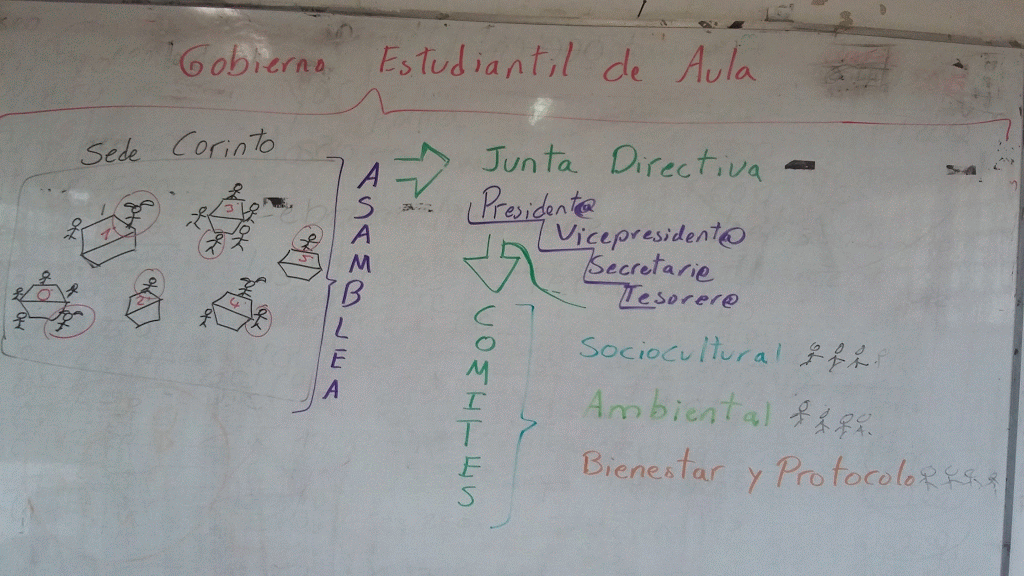 Gobierno Estudiantil de Aula
Sede Corinto
1
3
5
0
2
4
ASAMBLEA
Junta Directiva
President@
Vicepresident@
Secretari@
Tesorer@
COMITES
Sociocultural
Ambiental
Bienestar y Protocolo